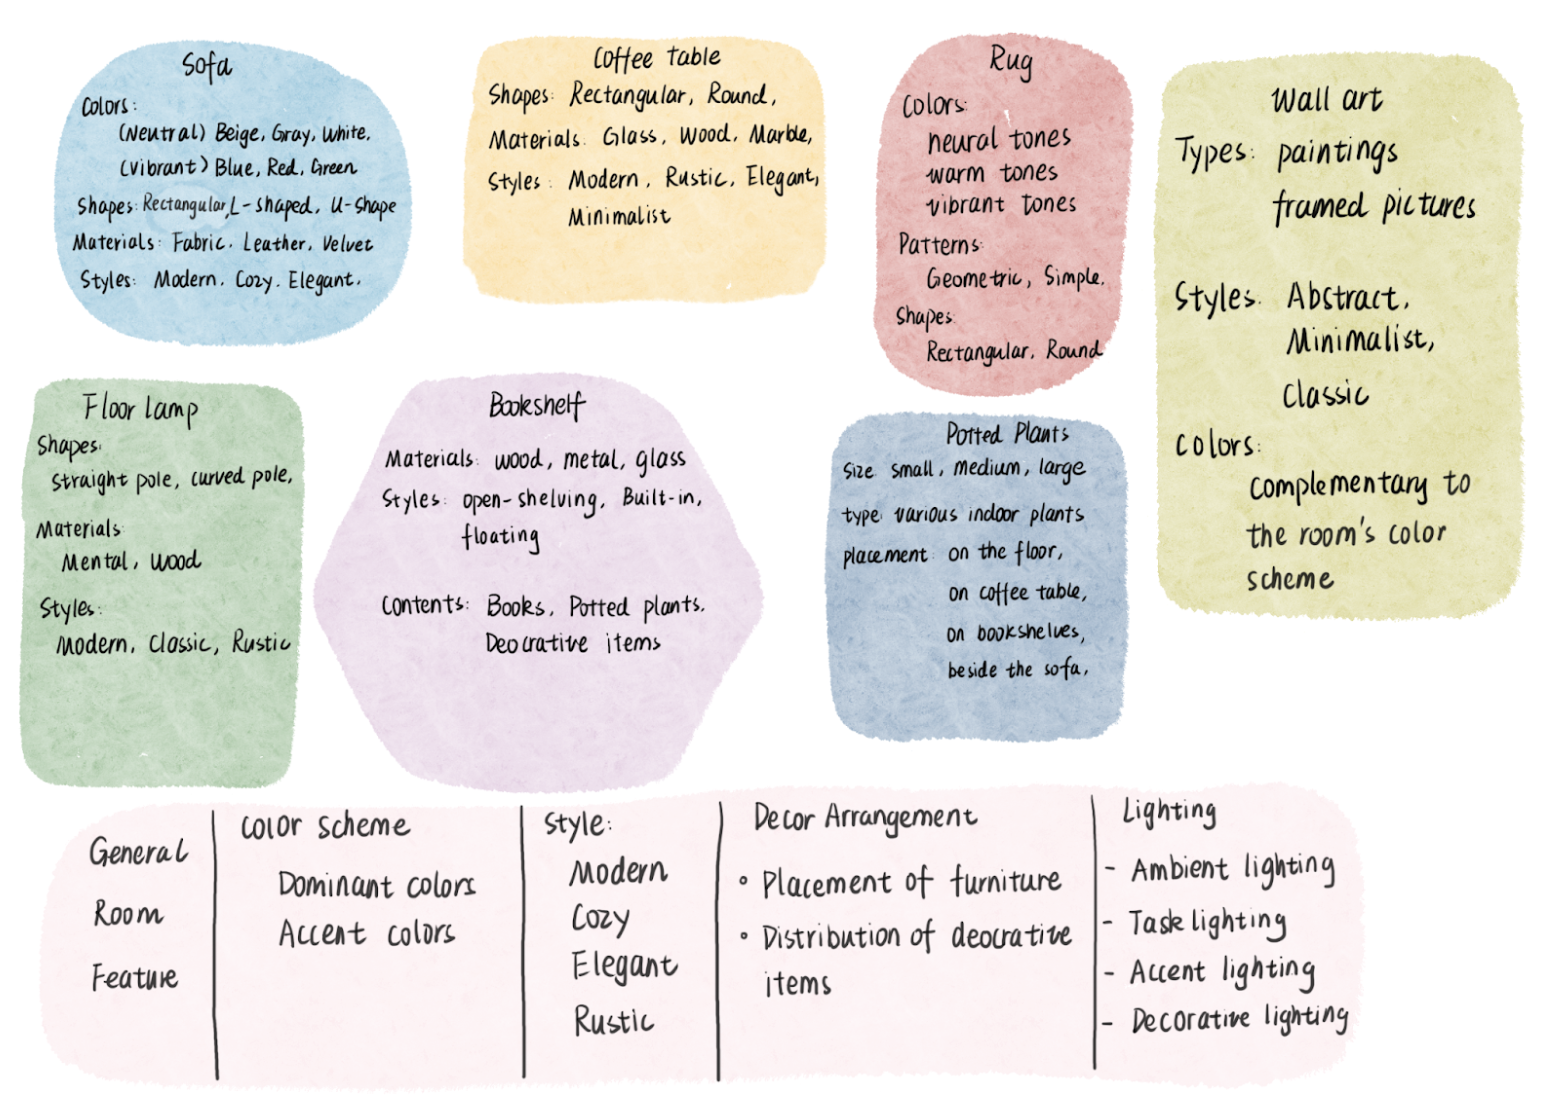 Sofa
Colors:
(Neutral) Beige, Gray, White,
(Vibrant) Blue, Red, Green
Shapes: Rectangular, L-shaped, U-shape
Materials: Fabric, Leather, Velvet
Styles: Modern, Cozy, Elegant,
Coffee table
Shapes: Rectangular, Round,
Materials: Glass, Wood, Marble,
Styles: Modern, Rustic, Elegant,
Minimalist
Rug
Colors:
neural tones
warm tones
vibrant tones
Patterns:
Geometric, Simple,
Shapes:
Rectangular, Round
Wall art
Types: paintings
framed pictures
Styles: Abstract,
Minimalist,
Classic
Colors:
complementary to
the room's color
scheme
Floor lamp
Shapes:
straight pole, curved pole,
Materials:
Mental, wood
Styles:
Modern, Classic, Rustic
Bookshelf
Materials: wood, metal, glass
Styles: open-shelving, Built-in,
floating
Contents: Books, Potted plants,
Deocrative items
Potted Plants
Size: small, medium, large
type: various indoor plants
placement: on the floor,
on coffee table,
on bookshelves,
beside the sofa,
General
Room
Feature
Color Scheme
Dominant colors
Accent colors
Style:
Modern
Cozy
Elegant
Rustic
Decor Arrangement
◦ Placement of furniture
◦ Distribution of deocrative
items
Lighting
- Ambient lighting
- Task lighting
- Accent lighting
- Decorative lighting